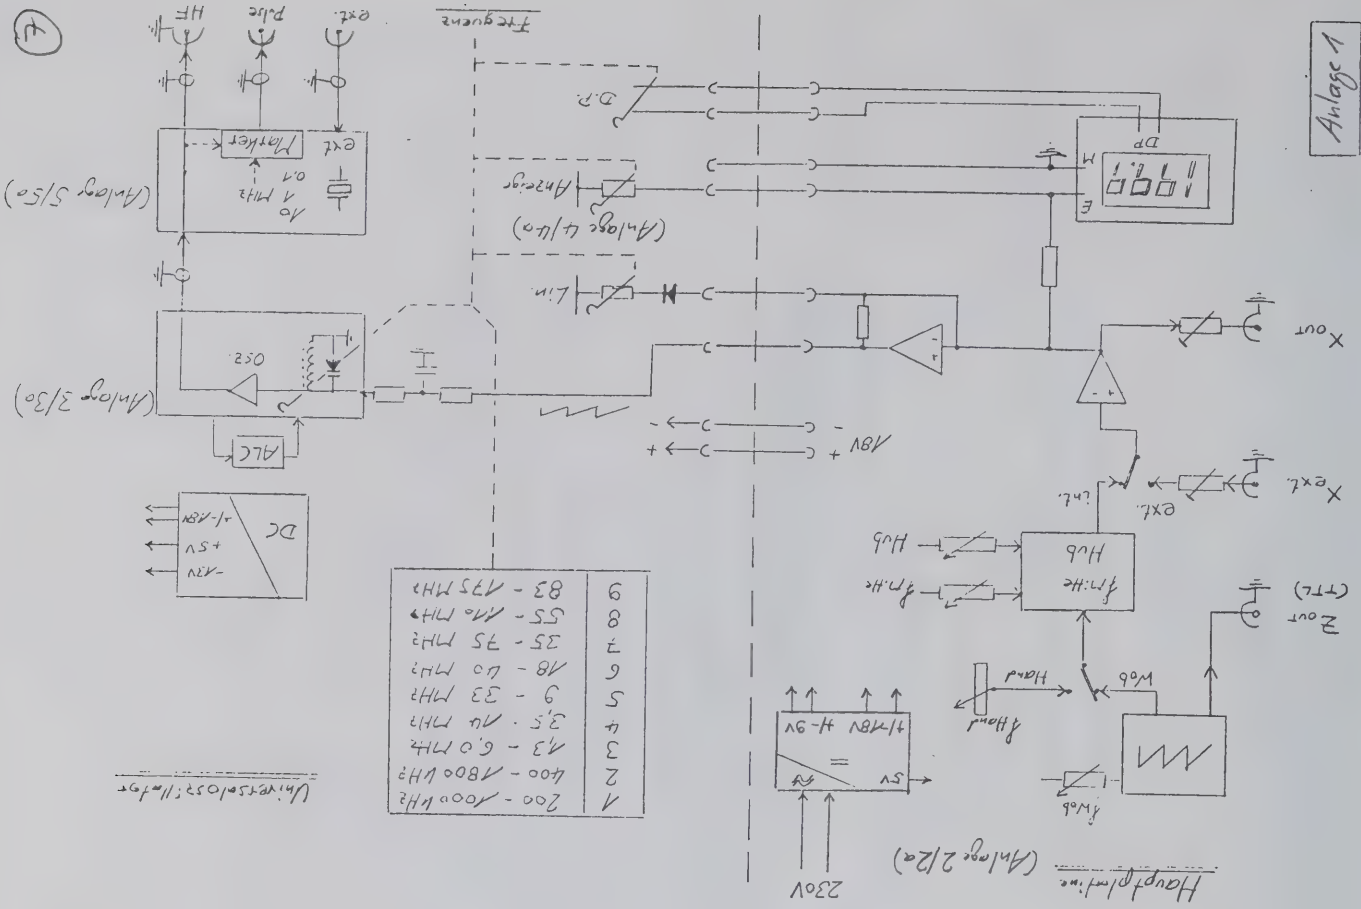 Anlage 1
Hauptplatine
(Anlage 2/2a)
230V
fWob
5V
+/-18V
+/-9V
fHand
Wob
Hand
ZOUT
(TTL)
fmitte
Hub
fmitte
Hub
Xext.
ext.
int.
18V
+
-
+
-
XOUT
+
-
+
-
E
M
1.8.8.8
DP
Universaloszillator
1 200 - 1000 kHz
2 400 - 1800 kHz
3 1,3 - 6,0 MHz
4 3,5 - 14 MHz
5 9 - 33 MHz
6 18 - 40 MHz
7 35 - 75 MHz
8 55 - 110 MHz
9 83 - 175 MHz
DC
-13V
+5V
+/-18V
ALC
(Anlage 3/3a)
Osz.
Lin.
(Anlage 4/4a)
Anzeige
D.P.
Frequenz
(Anlage 5/5a)
10
1 MHz
0.1
ext
Marker
ext.
Pulse
HF